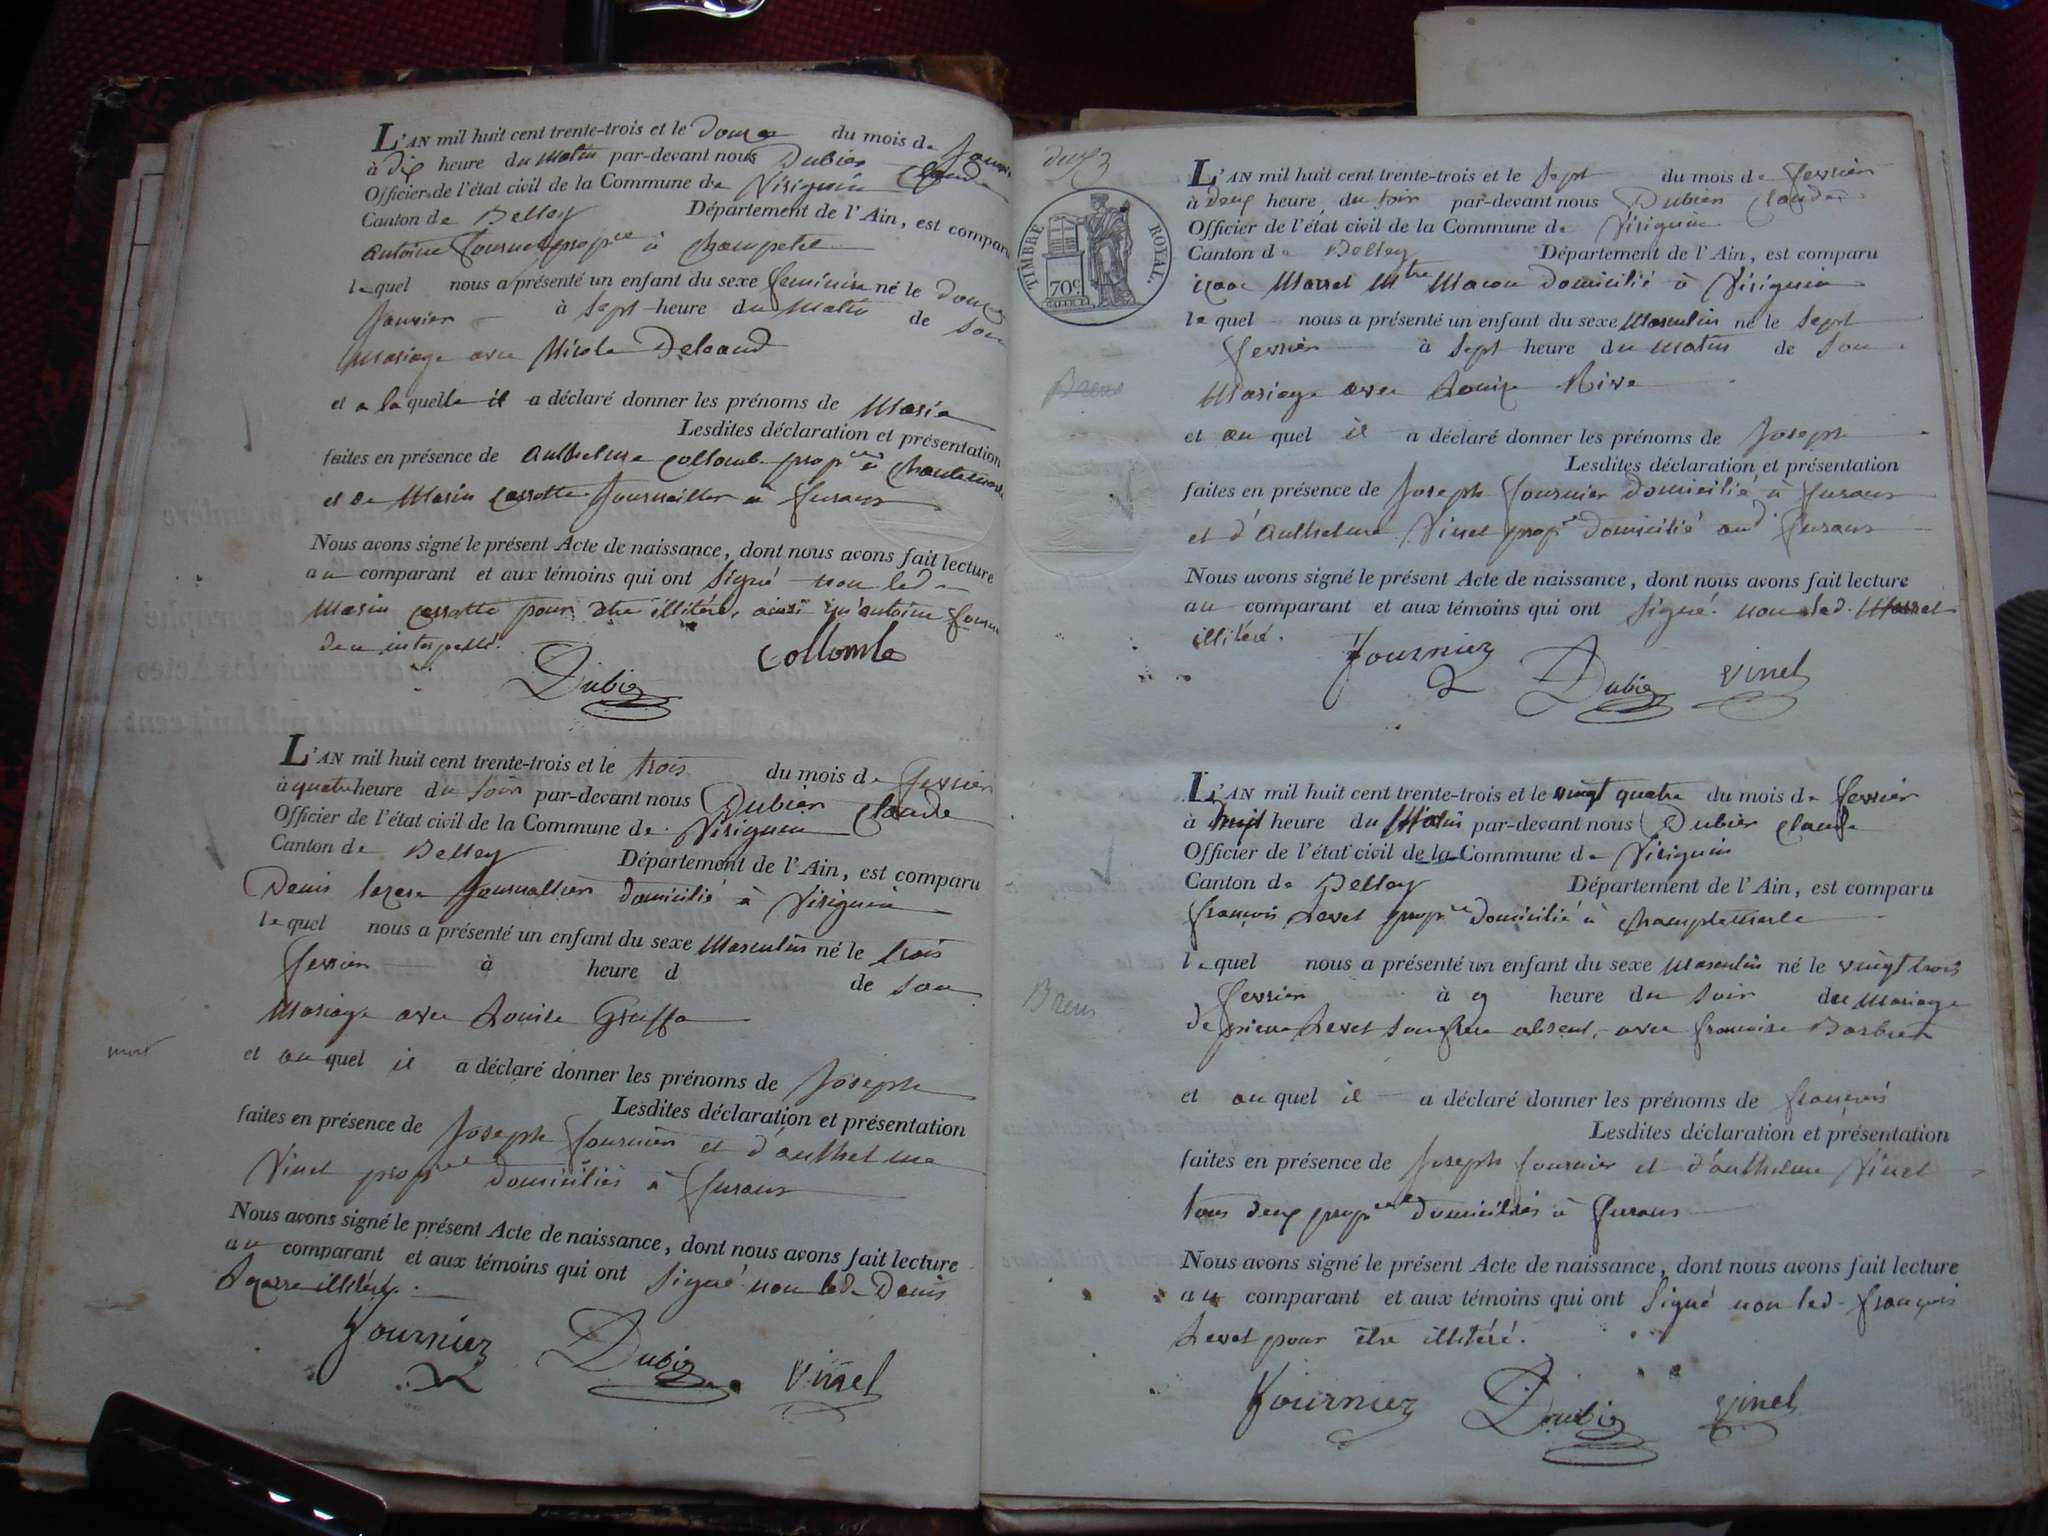 L'AN mil huit cent trente-trois et le douze du mois de
à dix heure du Matin par-devant nous Dubier Claude
Officier de l'état civil de la Commune de Virignin
Canton de Belley Département de l'Ain, est comparu
antoine fournier prop.re à
le quel nous a présenté un enfant du sexe feminin né le douze
Janvier à Sept heure du Matin de Son
Mariage avec Nicole
et a la quelle il a déclaré donner les prénoms de Marie
Lesdites déclaration et présentation
faites en présence de anthelme collomb prop.re à
et de Marin Journailler à furans
Nous avons signé le présent Acte de naissance, dont nous avons fait lecture
au comparant et aux témoins qui ont Signé non led
Marin pour être illitéré, ainsi qu'antoine
de ce interpellé.
collomb
Dubier
L'AN mil huit cent trente-trois et le trois du mois de fevrier
à quatre heure du Soir par-devant nous Dubier Claude
Officier de l'état civil de la Commune de Virignin
Canton de Belley Département de l'Ain, est comparu
Denis journallier domicilié à Virignin
le quel nous a présenté un enfant du sexe Masculin né le trois
fevrier à heure d de Son
Mariage avec Louise
mort
et au quel il a déclaré donner les prénoms de Joseph
Lesdites déclaration et présentation
faites en présence de Joseph fournier et d'anthelme
Vinet prop.res domiciliés à furans
Nous avons signé le présent Acte de naissance, dont nous avons fait lecture
au comparant et aux témoins qui ont Signé non led. Denis
illitéré.
fournier Dubier Vinet
TIMBRE ROYAL
70c
L'AN mil huit cent trente-trois et le Sept du mois de fevrier
à deux heure du Soir par-devant nous Dubier Claude
Officier de l'état civil de la Commune de Virignin
Canton de Belley Département de l'Ain, est comparu
Marrel Mtre Macon Domicilié à Virignin
le quel nous a présenté un enfant du sexe Masculin né le Sept
fevrier à Sept heure du Matin de Son
Brens
Mariage avec Louise Rive
et au quel il a déclaré donner les prénoms de Joseph
Lesdites déclaration et présentation
faites en présence de Joseph fournier domicilié à furans
et d'anthelme Vinet prop.re domicilié aud. furans
Nous avons signé le présent Acte de naissance, dont nous avons fait lecture
au comparant et aux témoins qui ont Signé. non led. Marrel
illitéré.
fournier Dubier Vinet
L'AN mil huit cent trente-trois et le vingt quatre du mois de fevrier
à huit heure du Matin par-devant nous Dubier Claude
Officier de l'état civil de la Commune de Virignin
Canton de Belley Département de l'Ain, est comparu
françois Levet prop.re domicilié à
le quel nous a présenté un enfant du sexe Masculin né le vingt trois
fevrier à 9 heure du Soir du Mariage
Brens
de pierre Levet Son frere absent, avec francoise
et au quel il a déclaré donner les prénoms de françois
Lesdites déclaration et présentation
faites en présence de Joseph fournier et d'anthelme Vinet
tous deux prop.res domiciliés à furans
Nous avons signé le présent Acte de naissance, dont nous avons fait lecture
au comparant et aux témoins qui ont Signé non led. françois
Levet pour être illitéré.
fournier Dubier Vinet